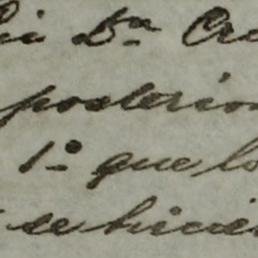 Dn Cr
posterior
1º que lo
se hicie